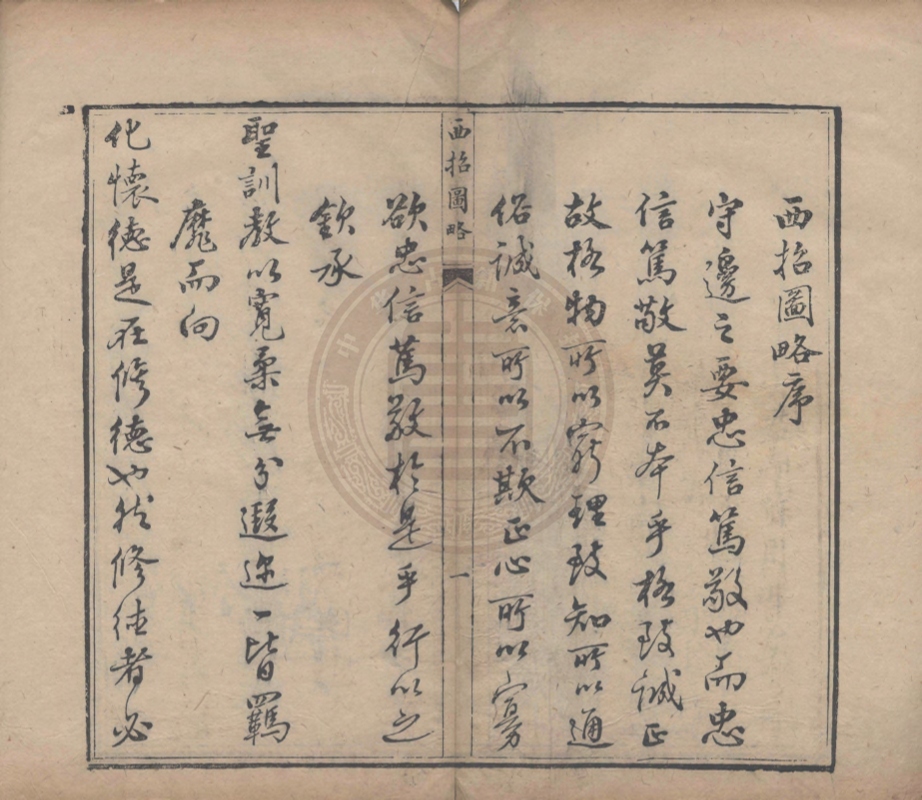 西招圖略序
守邊之要忠信篤敬也而忠
信篤敬莫不本乎格致誠正
故格物所以窮理致知所以通
俗誠意所以不欺正心所以寡
西招圖略
一
欲忠信篤敬於是乎行以之
欽承
聖訓敷以寬柔無分遐邇一皆羈
靡而向
化懷德是在修德也然修德者必